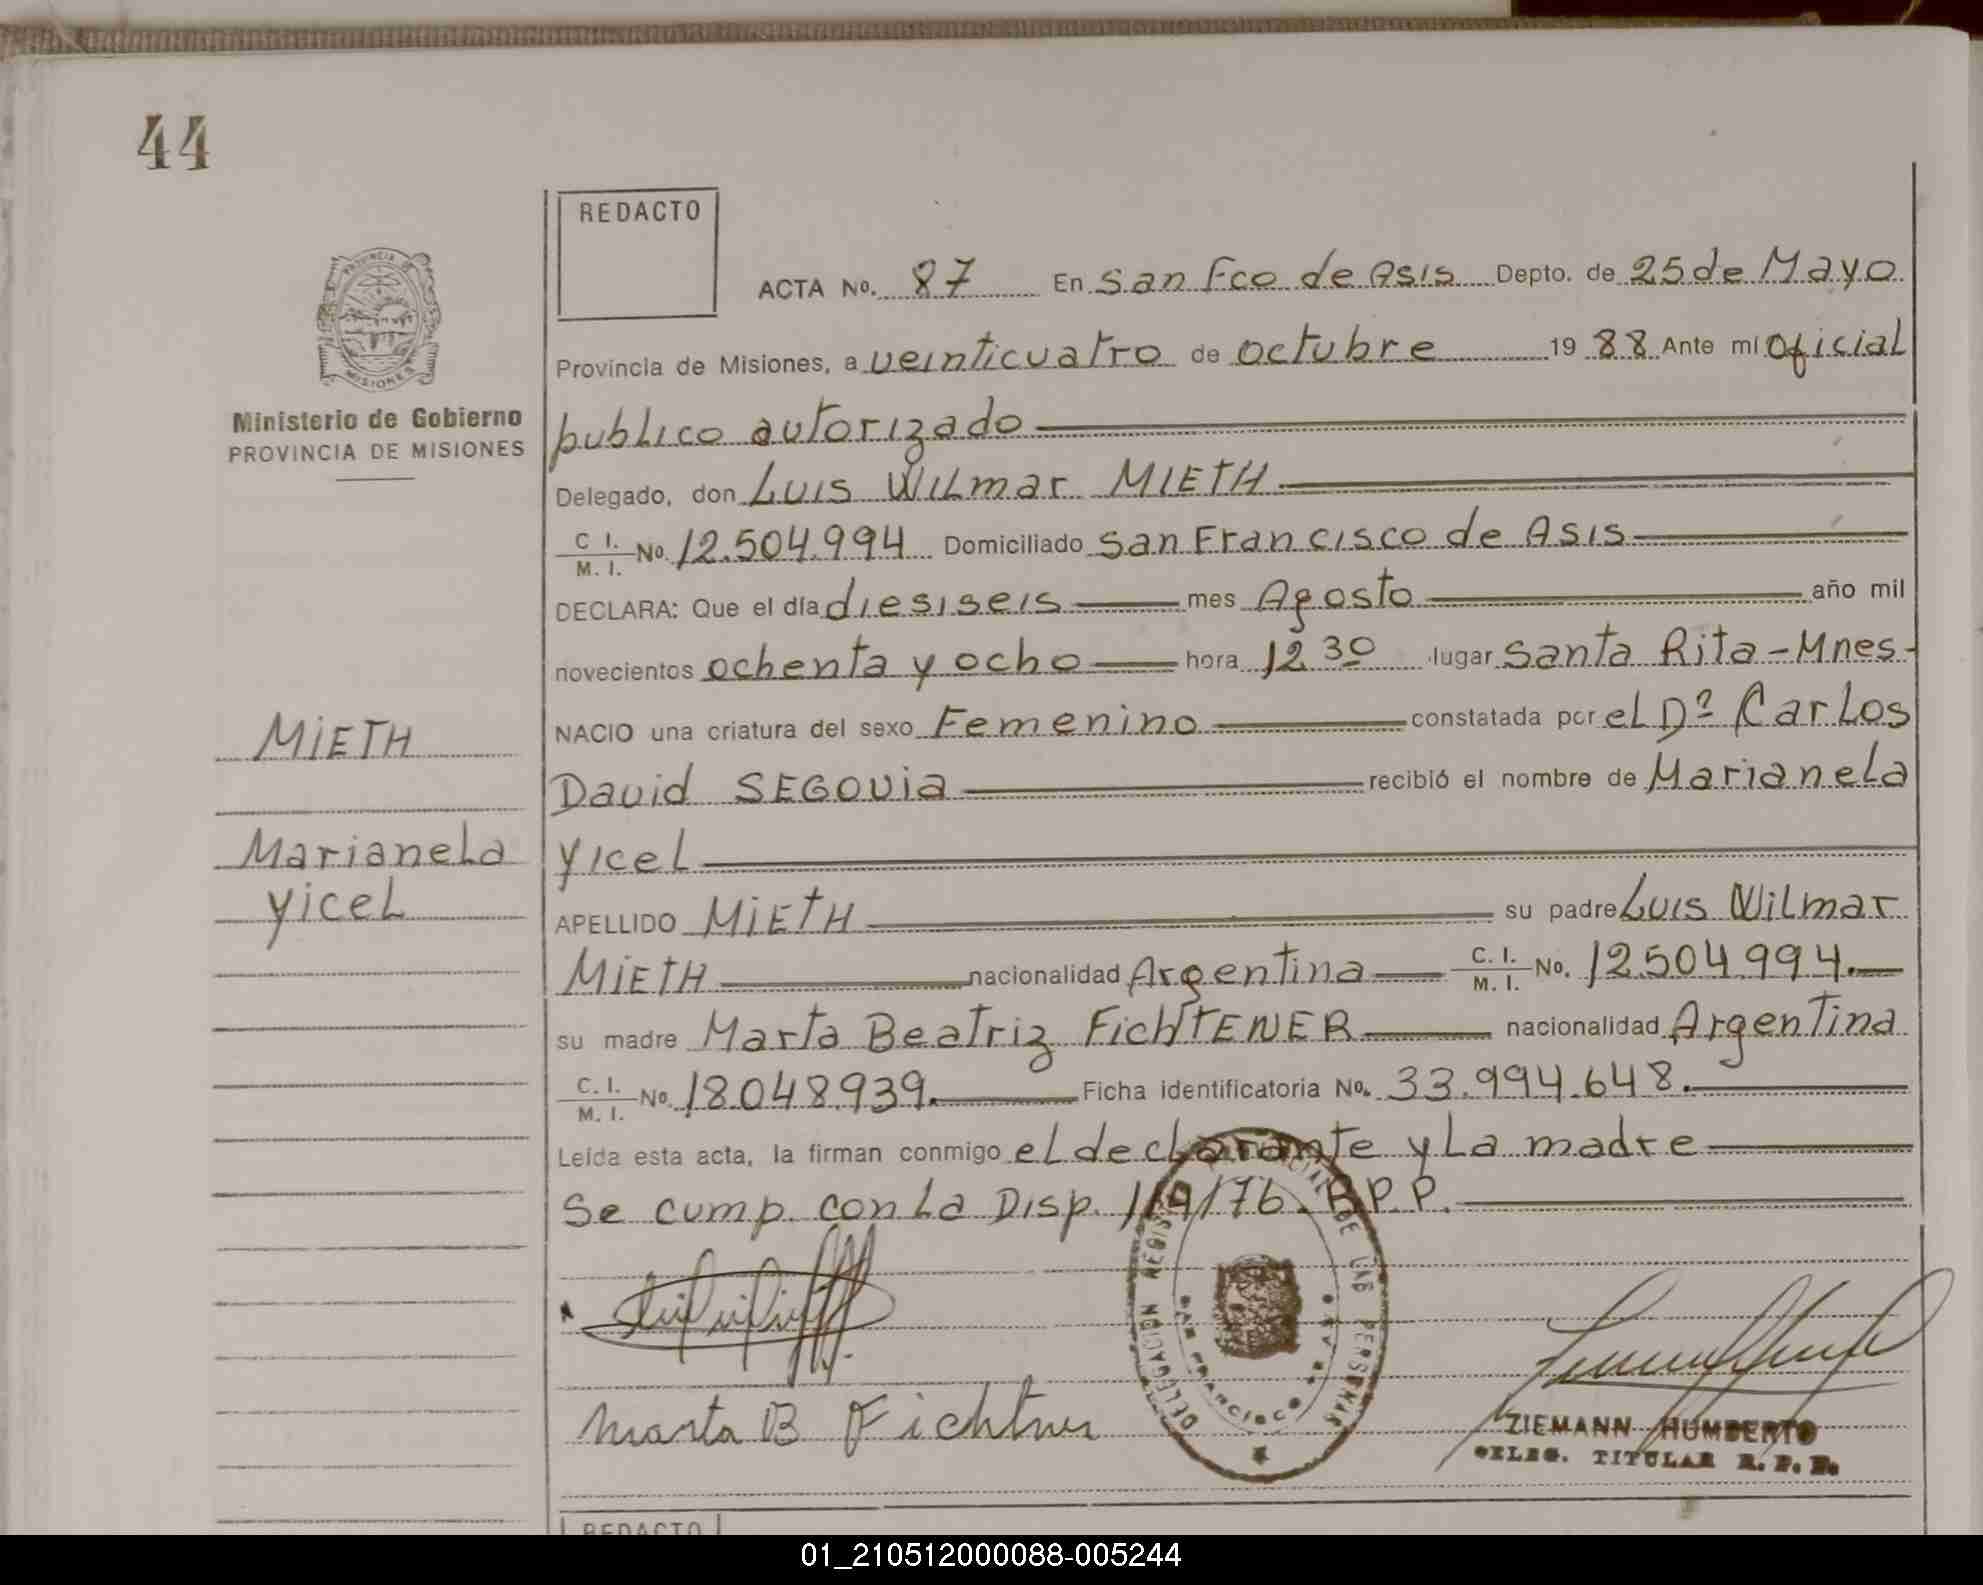 44
REDACTO
ACTA No. 87 En San Fco de Asis Depto. de 25 de Mayo
Provincia de Misiones, a veinticuatro de octubre 1988 Ante mi Oficial
publico autorizado
Delegado, don Luis Wilmar MIETH
C. I. / M. I. No. 12.504.994 Domiciliado San Francisco de Asis
DECLARA: Que el día diesiseis mes Agosto año mil
novecientos ochenta y ocho hora 12 30 lugar Santa Rita - Mnes -
NACIO una criatura del sexo Femenino constatada por el Dr Carlos
David SEGOVIA recibió el nombre de Marianela
Yicel
APELLIDO MIETH su padre Luis Wilmar
MIETH nacionalidad Argentina C. I. / M. I. No. 12504994.
su madre Marta Beatriz FICHTENER nacionalidad Argentina
C. I. / M. I. No. 18.048.939. Ficha identificatoria No. 33.994.648.
Leída esta acta, la firman conmigo el declarante y la madre
Se cump. con la Disp. 119/76. R.P.P.
PROVINCIA DE
MISIONES
Ministerio de Gobierno
PROVINCIA DE MISIONES
MIETH
Marianela
Yicel
Marta B Fichtner
DELEGACION REGISTRO PROVINCIAL DE LAS PERSONAS
SAN FRANCISCO DE ASIS
ZIEMANN HUMBERTO
DELEG. TITULAR R. P. P.
REDACTO
01_210512000088-005244